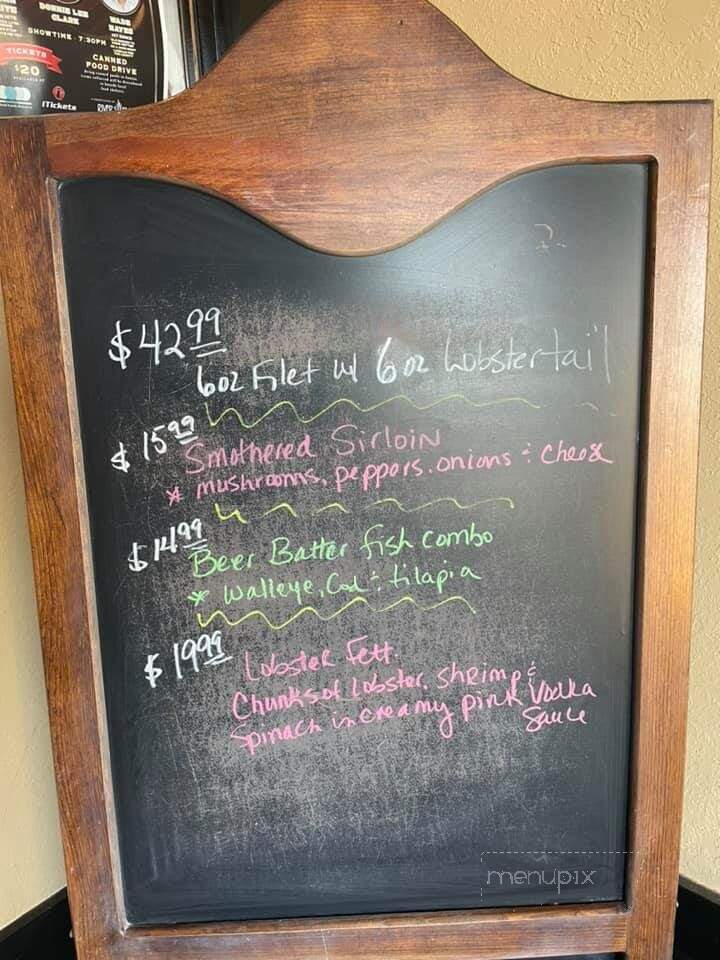 DONNIE LEE
CLARK
WADE
HAYES
SHOWTIME - 7:30PM
TICKETS
$20
CANNED
FOOD DRIVE
iTickets
$42.99
6oz Filet w/ 6oz Lobster tail
$15.99
Smothered Sirloin
* mushrooms, peppers, onions & cheese
$14.99
Beer Batter fish combo
* Walleye, Cod & tilapia
$19.99 Lobster Fett.
Chunks of Lobster, shrimp &
spinach in creamy pink Vodka
Sauce
menupix